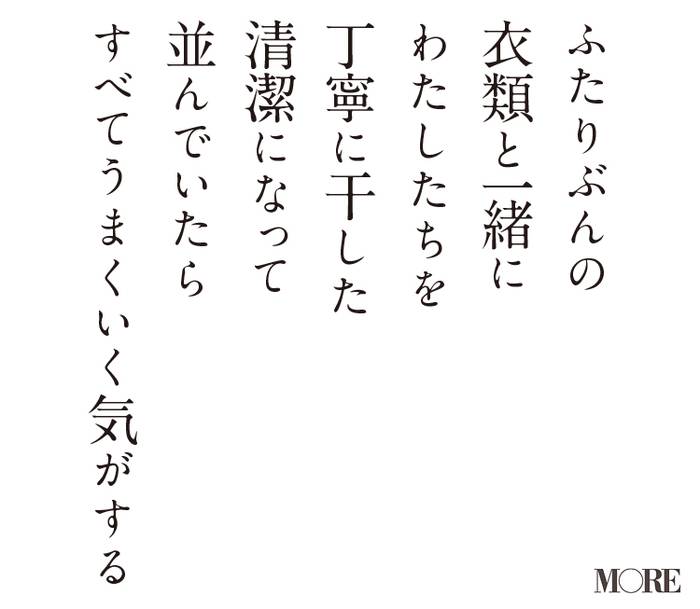 ふたりぶんの
衣類と一緒に
わたしたちを
丁寧に干した
清潔になって
並んでいたら
すべてうまくいく気がする
MORE